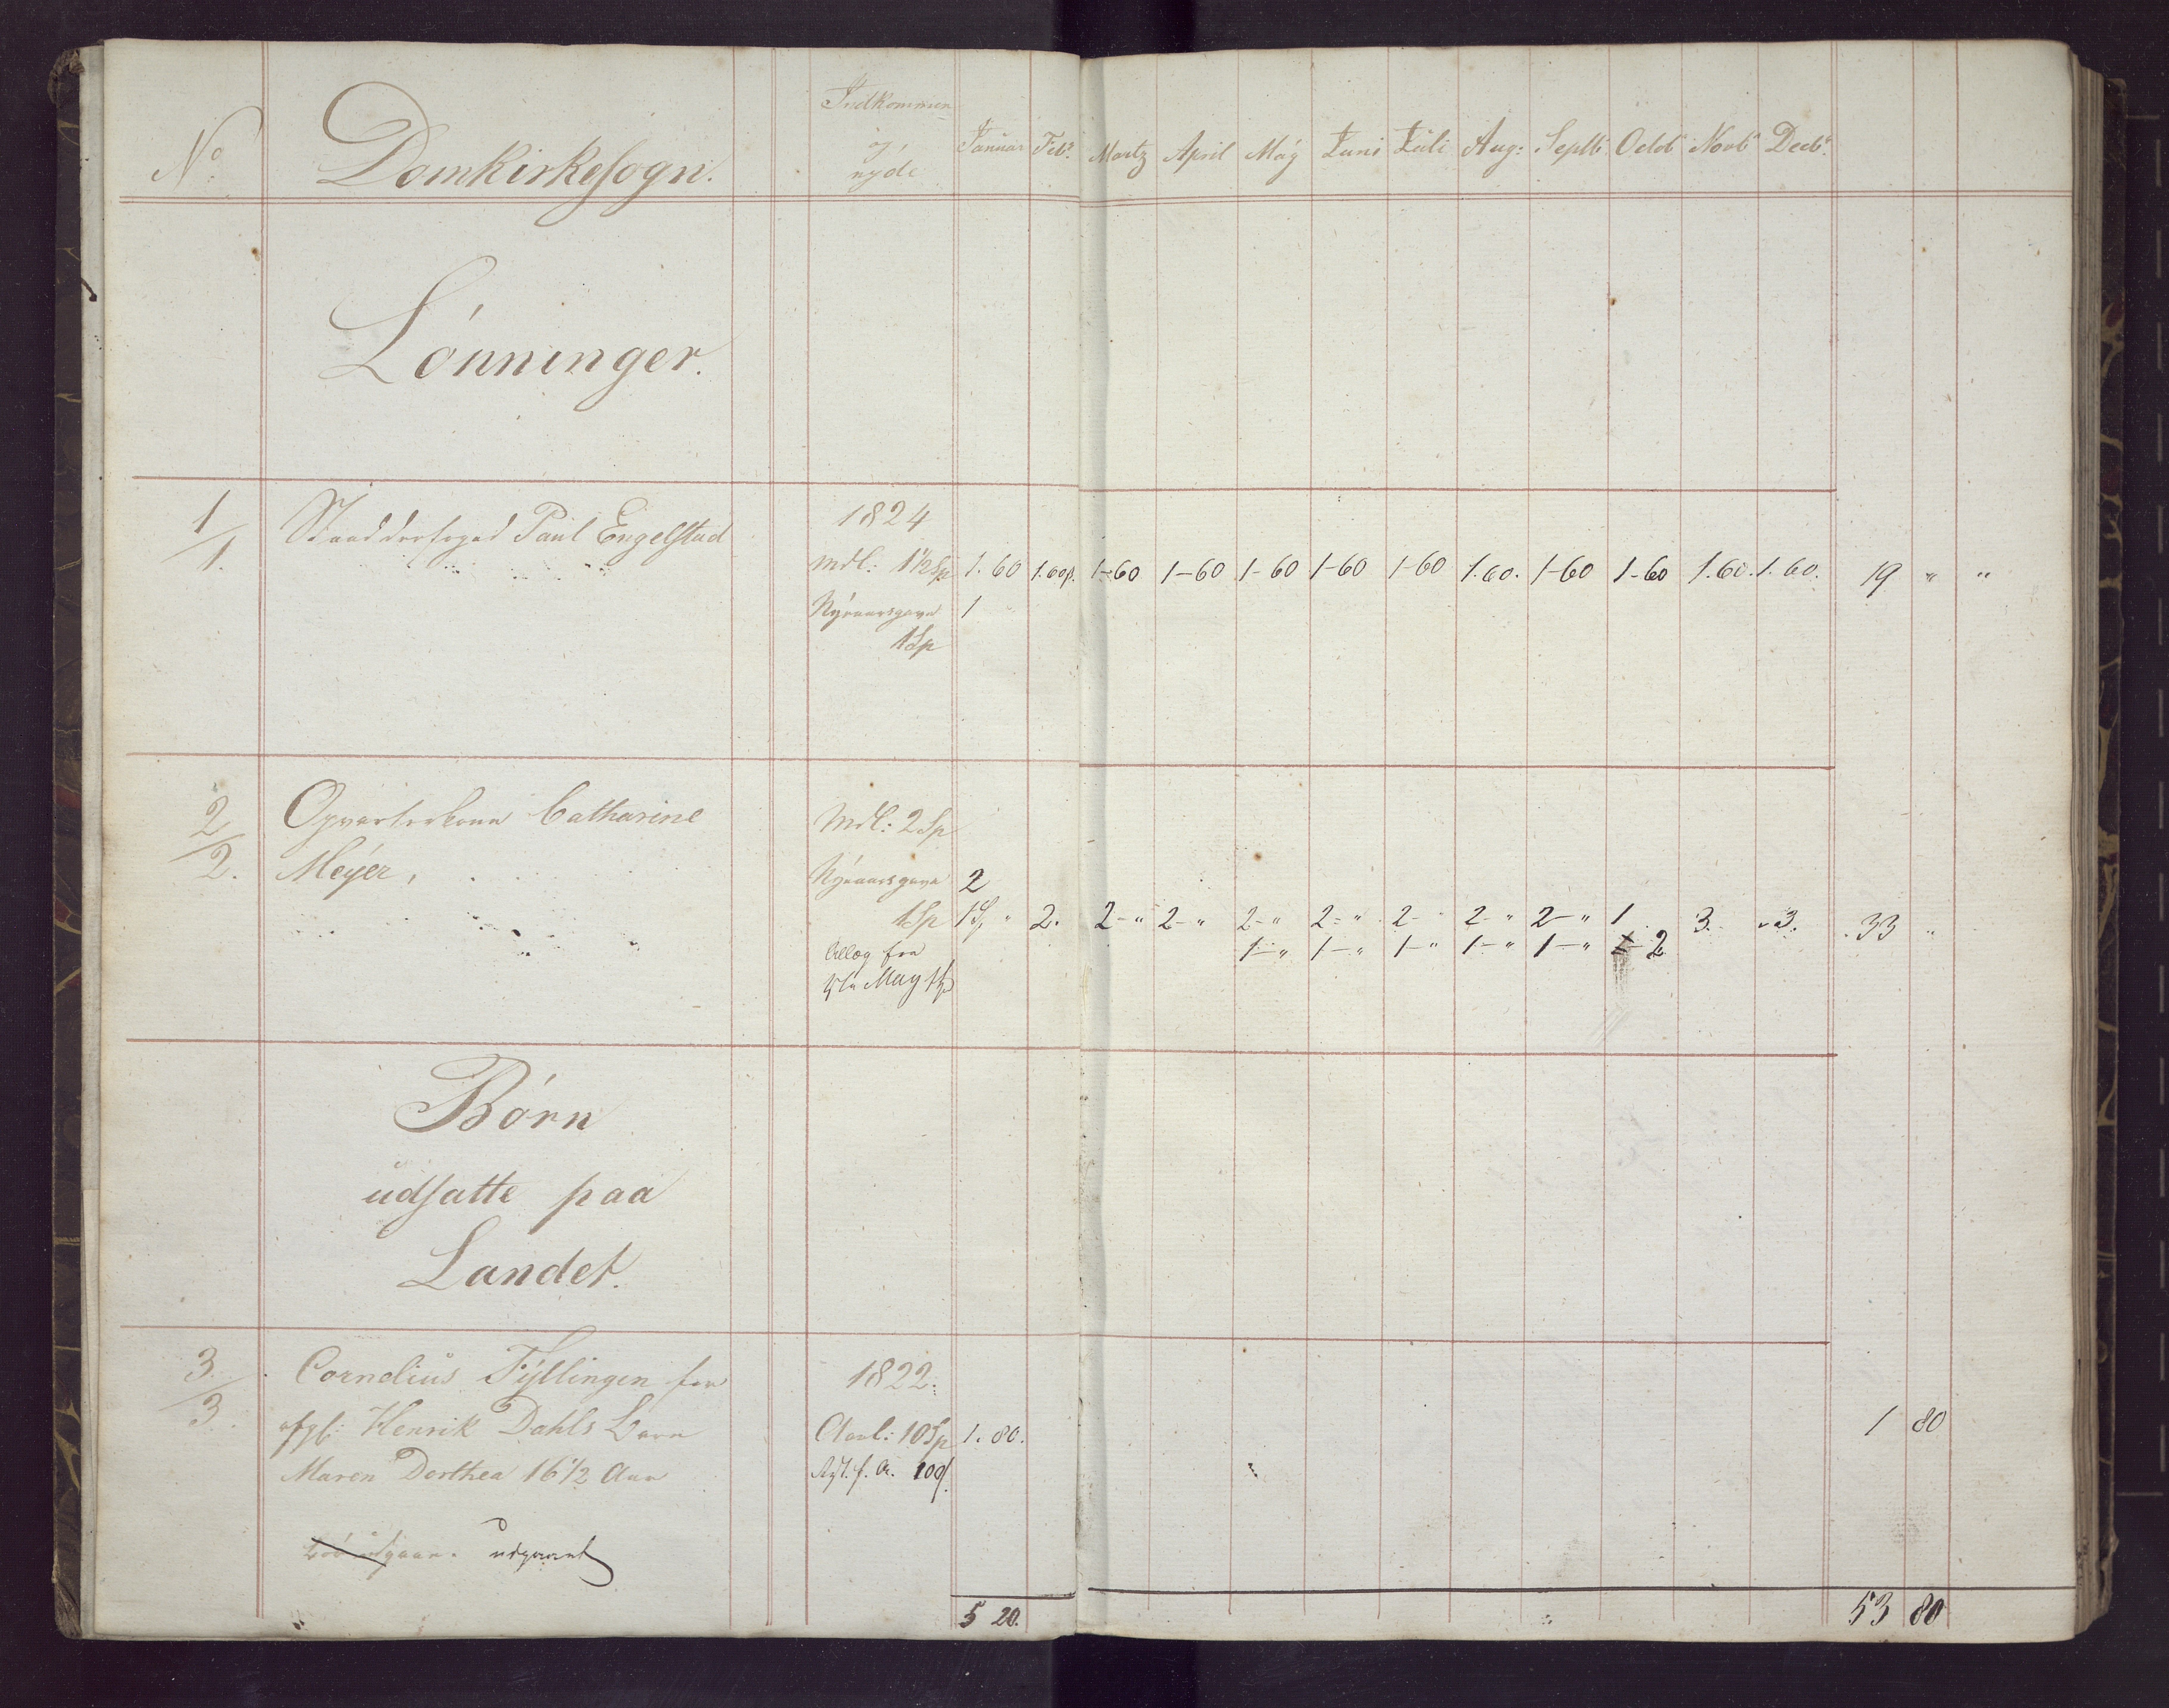 No. Domkirkesogn. Indkommen og nyde Januar Febr. Martz April Máy Iuni Iuli Aug: Septb Octob Novb Decb.
Lónninger.
1/1. Stodderfoged Paul Engelstad 1824
mdl: 1 1/2 Sp 1. 60 1. 60 1-60 1-60 1-60 1-60 1-60 1.60. 1-60 1-60 1.60. 1.60. 19 " "
Nýeaarsgave 1
1 Sp
2/2. Opvarterkone Catharine Mdl: 2 Sp
Meýer, Nýeaarsgave 2
1 Sp " 2. 2-" 2-" 2-" 2-" 2- 2-" 2-" 1 3. " 3. 33 "
Tillæg fra 1-" 1-" 1-" 1-" 1-" 2
May
Bórn
udsatte paa
Landet.
3/3. Cornelius Fýllingen for 1822.
Henrik Dahls Barn Aarl: 10 Sp 1. 80. 1 80
Maren Dorthea 16 1/2 Aar
udgaaet
5 20. 53 80